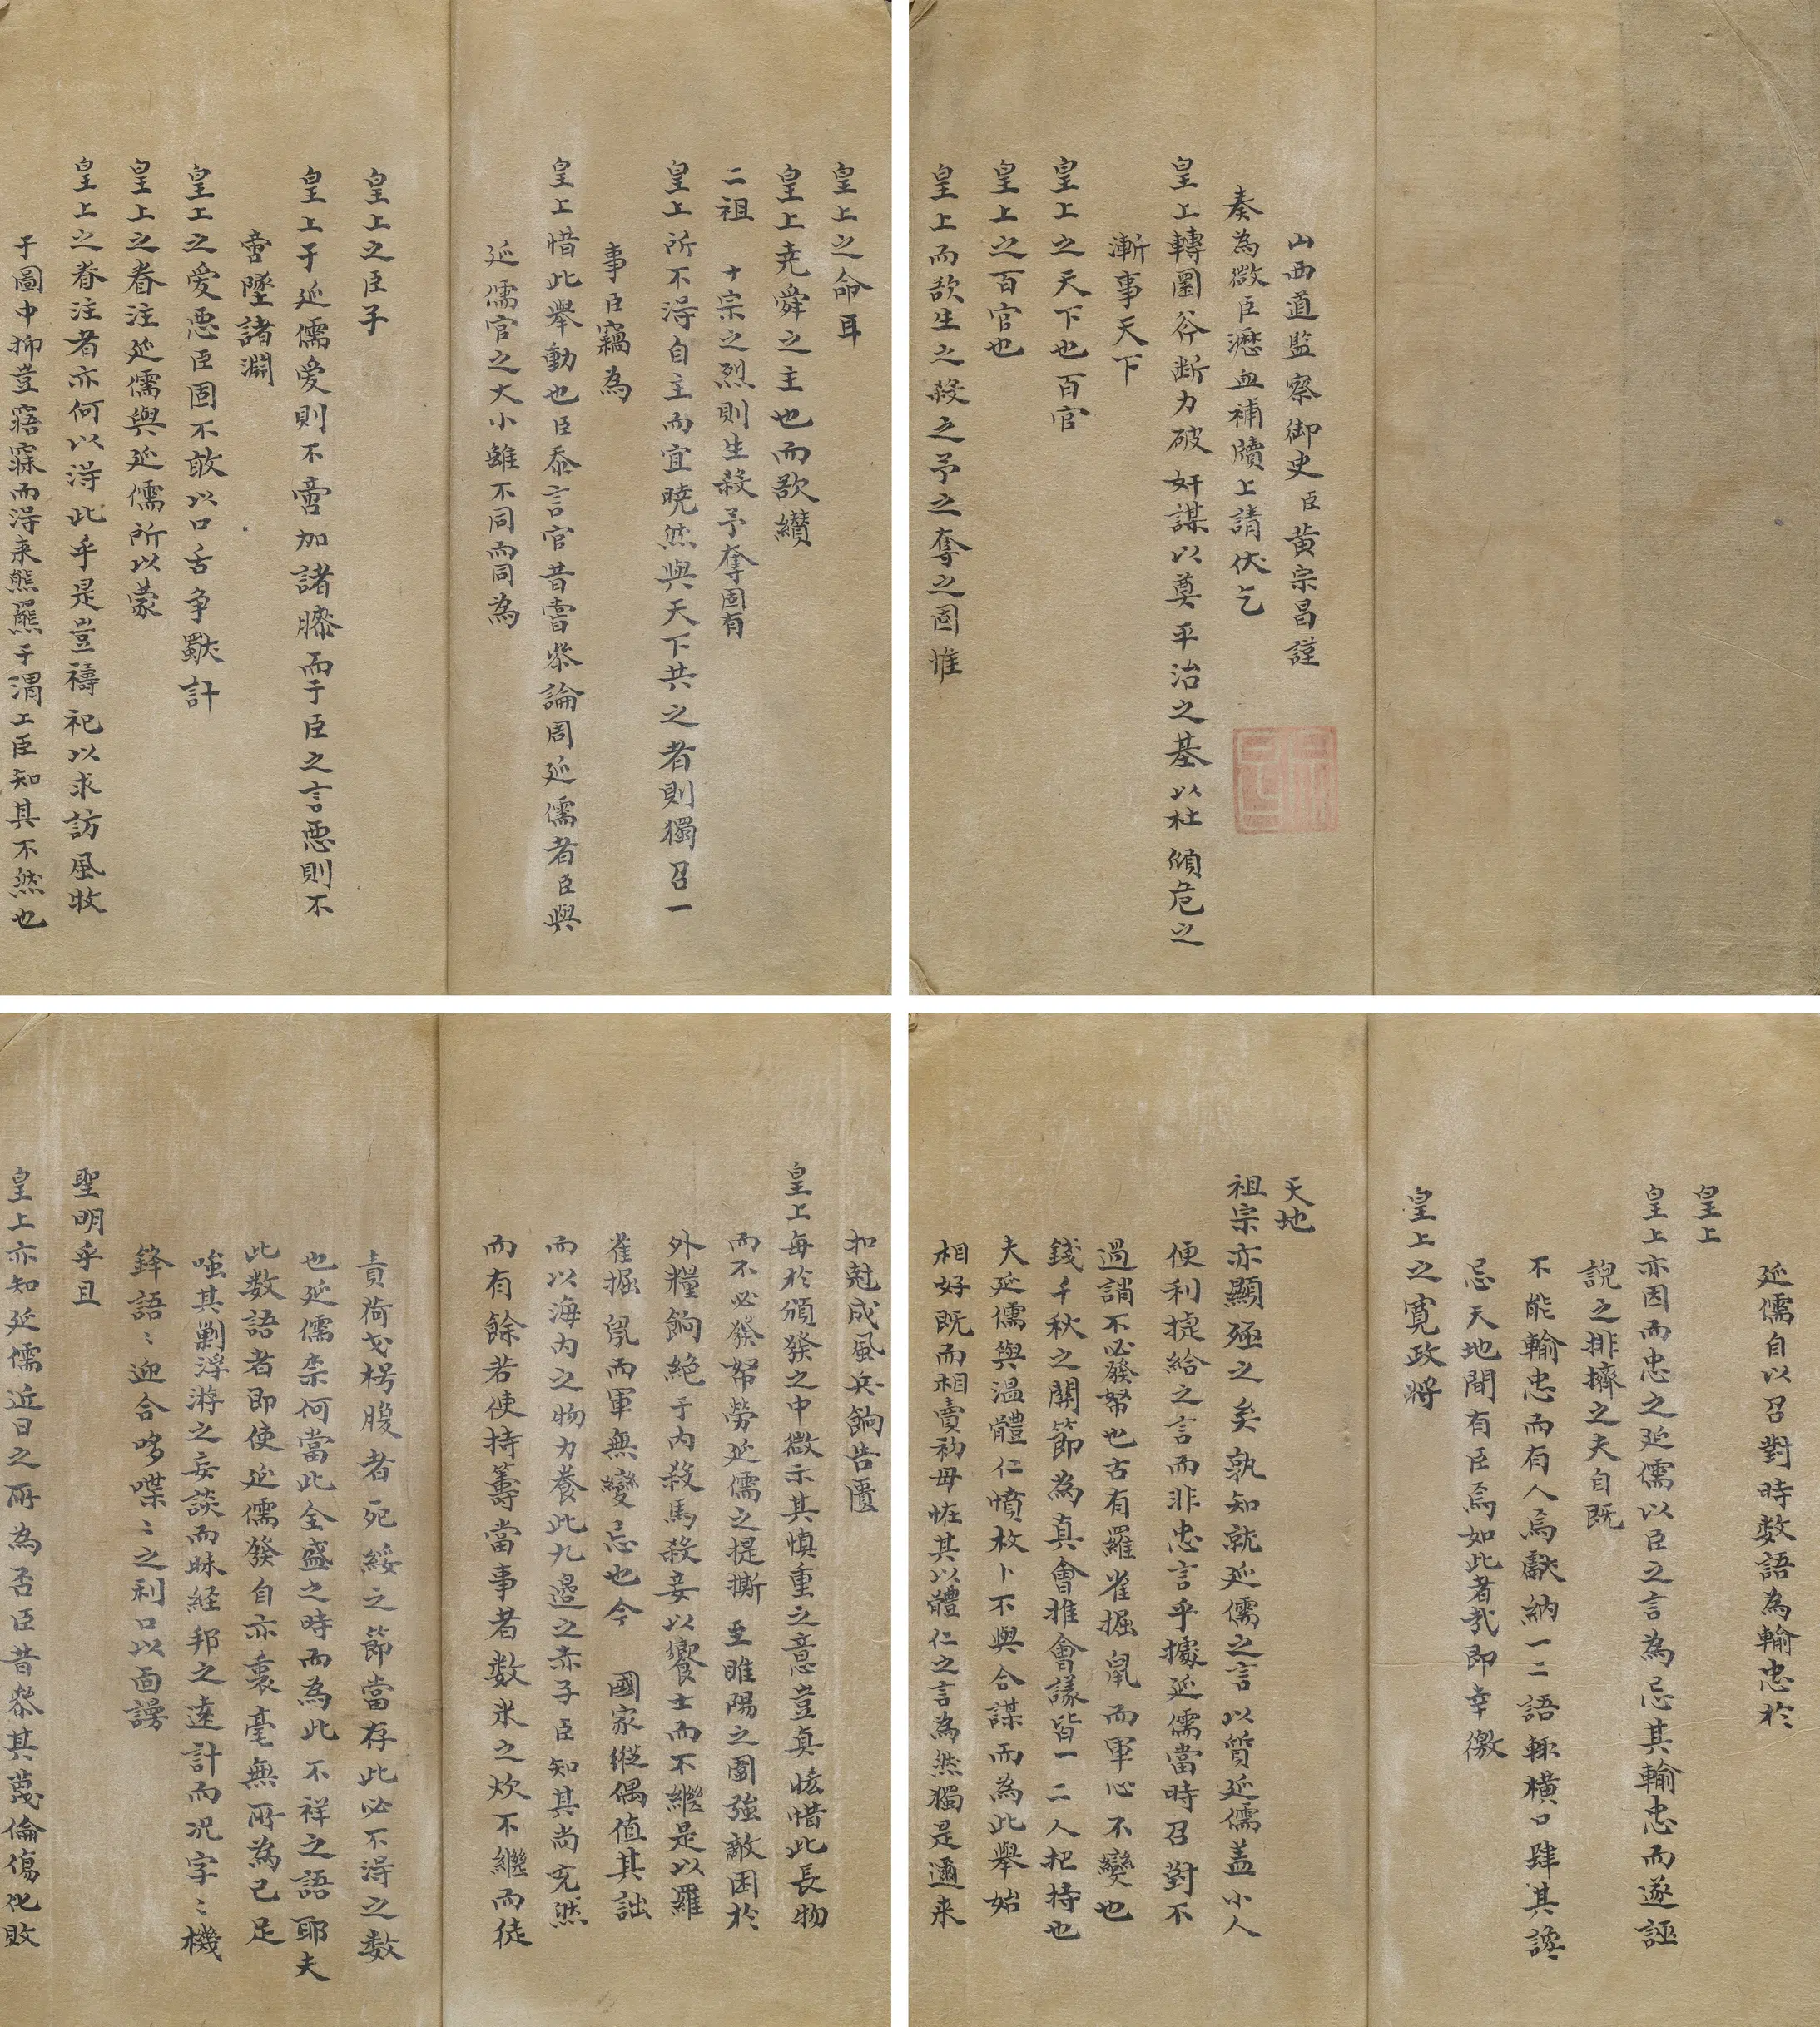 山西道監察御史臣黃宗昌謹
奏為微臣瀝血補牘上請伏乞
皇上轉圜斧斷力破奸謀以奠平治之基以杜傾危之
漸事天下
皇上之天下也百官
皇上之百官也
皇上而欲生之殺之予之奪之固惟
皇上之命耳
皇上堯舜之主也而欲纘
二祖十宗之烈則生殺予奪固有
皇上所不得自主而宜曉然與天下共之者則獨召一
事臣竊為
皇上惜此舉動也臣忝言官昔嘗叅論周延儒者臣與
延儒官之大小雖不同而同為
皇上之臣子
皇上于延儒愛則不啻加諸膝而于臣之言惡則不
啻墜諸淵
皇上之愛惡臣固不敢以口舌争歜計
皇上之眷注延儒與延儒所以蒙
皇上之眷注者亦何以得此乎是豈禱祀以求訪風牧
于圖中抑豈寤寐而得来熊羆于渭上臣知其不然也
延儒自以召對時数語為輸忠於
皇上
皇上亦因而忠之延儒以臣之言為忌其輸忠而遂誣
說之排擠之夫自既
不能輸忠而有人焉獻納一二語輒橫口肆其讒
忌天地間有臣焉如此者哉即幸徼
皇上之寛政將
天地
祖宗亦顯殛之矣孰知就延儒之言以質延儒盖小人
便利捷給之言而非忠言乎據延儒當時召對不
過誚不必發帑也古有羅雀掘鼠而軍心不變也
錢千秋之關節為真會推會議皆一二人把持也
夫延儒與温體仁憤枚卜不與合謀而為此舉始
相好既而相賣初毋恠其以體仁之言為然獨是邇来
扣尅成風兵餉告匱
皇上每於頒發之中微示其慎重之意豈真恡惜此長物
而不必發帑勞延儒之提撕至睢陽之圍強敵困於
外糧餉絶于内殺馬殺妾以饗士而不繼是以羅
雀掘鼠而軍無變忌也今國家縱偶值其詘
而以海内之物力養此九邉之赤子臣知其尚充然
而有餘若使持籌當事者数米之炊不繼而徒
責荷戈枵腹者死綏之節當存此必不得之数
也延儒柰何當此全盛之時而為此不祥之語耶夫
此数語者即使延儒發自亦裏毫無所為已足
嗤其剿浮游之妄談而昧經邦之遠計而况字〻機
鋒語〻迎合哆喋〻之利口以面謾
聖明乎且
皇上亦知延儒近日之所為否臣昔叅其蔑倫傷化敗